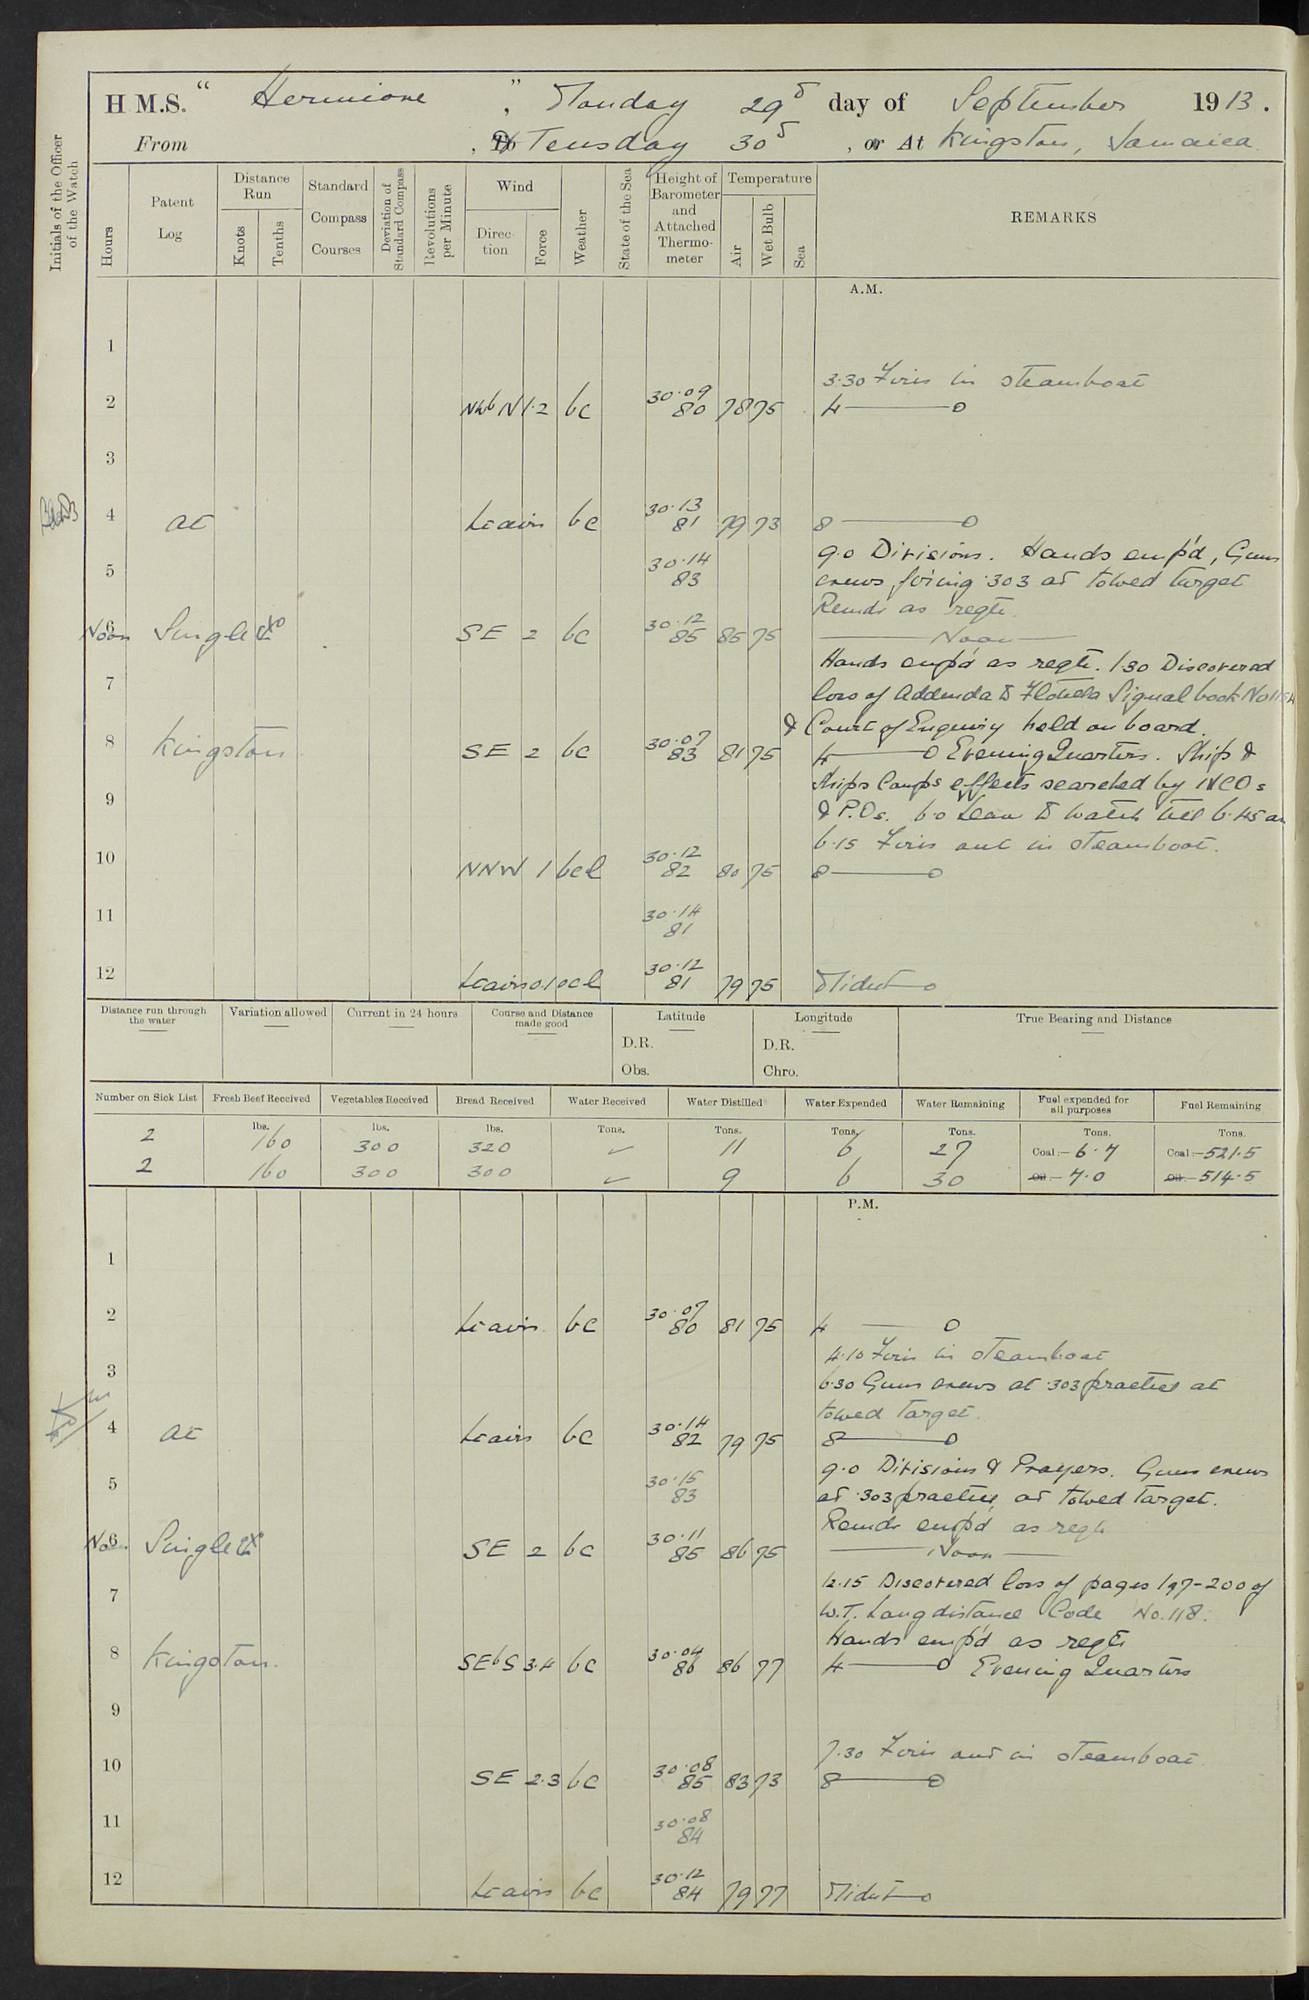 H.M.S. "Hermione", Monday 29th day of September 1913.
From , To Tuesday 30th , or At Kingston, Jamaica.
Initials of the Officer of the Watch
Hours
Patent Log
Distance Run
Knots
Tenths
Standard Compass Courses
Deviation of Standard Compass
Revolutions per Minute
Wind
Direction
Force
Weather
State of the Sea
Height of Barometer and Attached Thermometer
Temperature
Air
Wet Bulb
Sea
REMARKS
A.M.
1
3.30 Fires in steamboat
2 NWbN 1.2 bc 30.09 80 78 75 4 — 0
3
4 at Lt airs bc 30.13 81 79 73 8 — 0
9.0 Divisions. Hands emp'd, Guns
5 30.14 83 crews firing .303 at towed target
Remdr as reqte.
6 Noon Single SE 2 bc 30.12 85 85 75 — Noon —
Hands emp'd as reqte. 1.30 Discovered
7 loss of Addenda to Flotilla Signal book No
& Court of Enquiry held on board.
8 Kingston SE 2 bc 30.07 83 81 75 4 — 0 Evening Quarters. Ship &
Ships Comps effects searched by NCOs
9 & P.Os. 6.0 Leave to watch till 6.45 am
6.15 Fires out in steamboat.
10 NNW 1 bcl 30.12 82 80 75 8 — 0
11 30.14 81
12 Lt airs 0.1 ocl 30.12 81 79 75 Midnt — 0
Distance run through the water
Variation allowed
Current in 24 hours
Course and Distance made good
Latitude
D.R.
Obs.
Longitude
D.R.
Chro.
True Bearing and Distance
Number on Sick List Fresh Beef Received Vegetables Received Bread Received Water Received Water Distilled Water Expended Water Remaining Fuel expended for all purposes Fuel Remaining
lbs. lbs. lbs. Tons. Tons. Tons. Tons. Tons. Tons.
2 160 300 320 ✓ 11 6 27 Coal:- 6.7 Coal:- 521.5
2 160 300 300 ✓ 9 6 30 Oil:- 7.0 Oil:- 514.5
P.M.
1
2 Lt airs bc 30.07 80 81 75 4 — 0
4.10 Fires in steamboat
3 6.30 Guns crews at .303 practice at
towed target.
4 at Lt airs bc 30.14 82 79 75 8 — 0
9.0 Divisions & Prayers. Guns crews
5 30.15 83 at .303 practice at towed target.
Remdr emp'd as reqte
6 Noon Single SE 2 bc 30.11 85 86 75 — Noon —
12.15 Discovered loss of pages 197-200 of
7 W.T. Long distance Code No. 118.
Hands emp'd as reqte
8 Kingston. SEbS 3.4 bc 30.04 86 86 77 4 — 0 Evening Quarters
9
7.30 Fires out in steamboat.
10 SE 2.3 bc 30.08 85 83 73 8 — 0
11 30.08 84
12 Lt airs bc 30.12 84 79 77 Midnt — 0